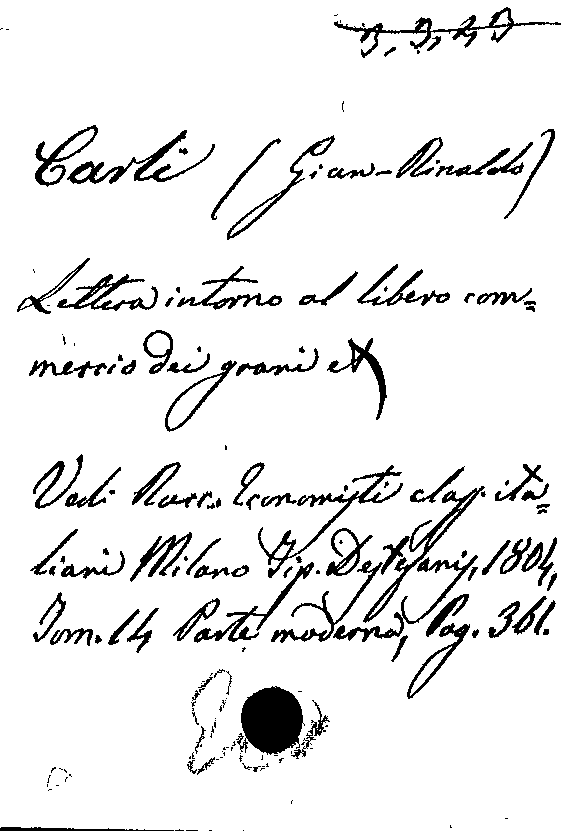 3, 3, 2, 3
Carli (Gian-Rinaldo)
Lettera intorno al libero com=
mercio dei grani etc
Vedi Racc. Economisti class. ita=
liani Milano Tip. Destefanis, 1804,
Tom. 14 Parte moderna, Pag. 361.